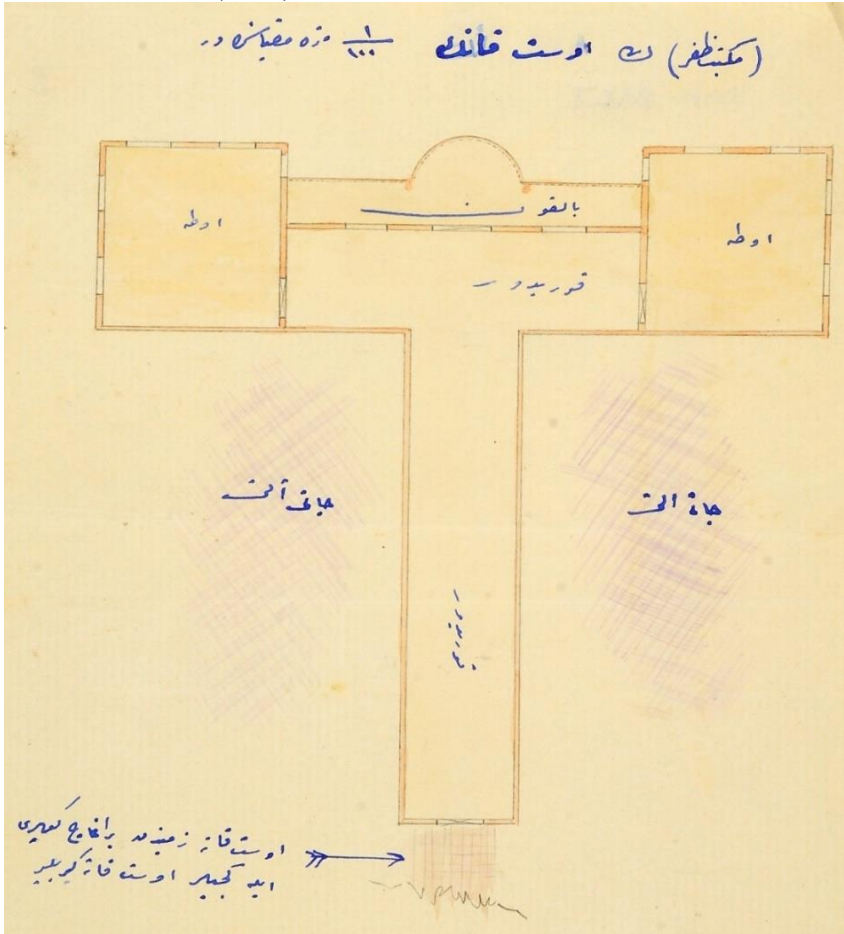 (مكتب ظفر) ڭ اوست قاتك ١/١٠٠ مقياسنده در
اوطه
بالقون
اوطه
قوريدور
چاتى آلتى
چاتى التى
قوريدور
اوست قاته زميندن بر اغاج كوپرى
ايله كچيلير اوست قاته كيريلير